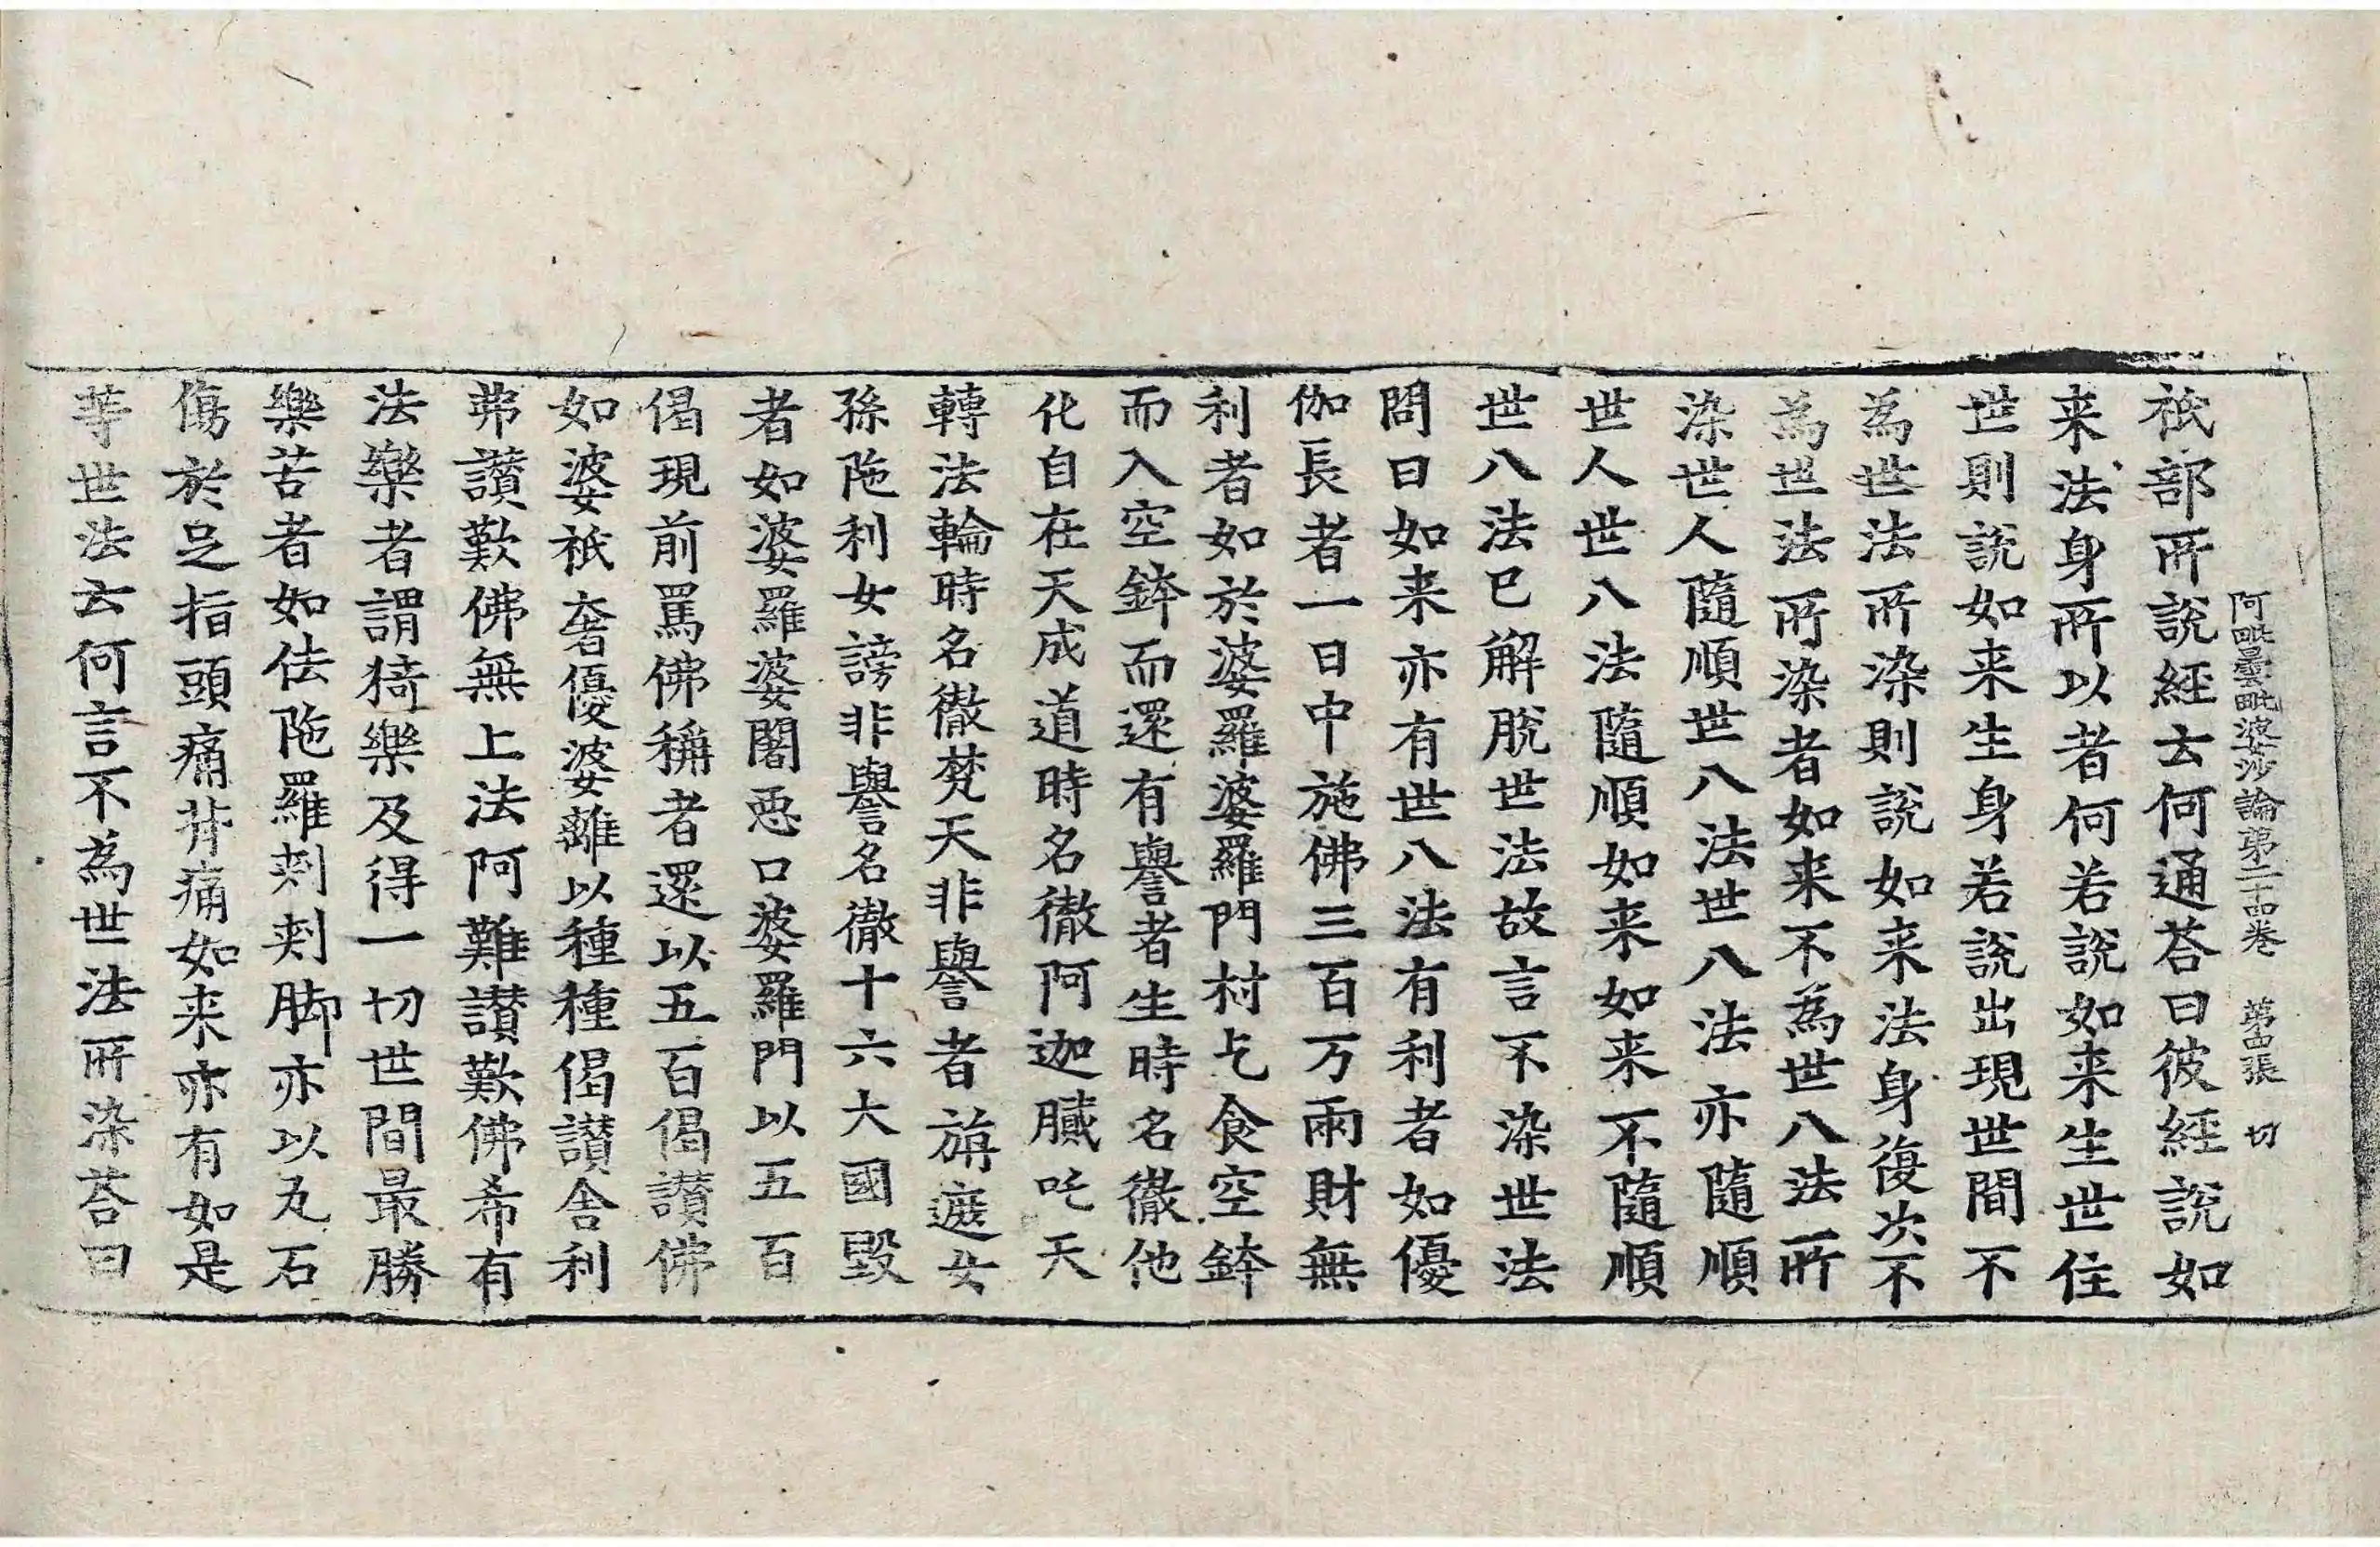 阿毗曇毗婆沙論第二十四卷 第四張 切
祇部所說經云何通荅曰彼經說如
来法身所以者何若說如来生世住
世則說如来生身若說出現世間不
為世法所染則說如来法身復次不
為世法所染者如来不為世八法所
染世人隨順世八法世八法亦隨順
世人世八法隨順如来如来不隨順
世八法已解脫世法故言不染世法
問曰如来亦有世八法有利者如優
伽長者一日中施佛三百万兩財無
利者如於婆羅婆羅門村乞食空鉢
而入空鉢而還有譽者生時名徹他
化自在天成道時名徹阿迦膩吒天
轉法輪時名徹梵天非譽者旃遮女
孫陁利女謗非譽名徹十六大國毀
者如婆羅婆闍惡口婆羅門以五百
偈現前罵佛稱者還以五百偈讃佛
如婆祇奢優婆離以種種偈讃舎利
弗讃歎佛無上法阿難讃歎佛希有
法樂者謂猗樂及得一切世間最勝
樂苦者如佉陁羅刾刾脚亦以石
傷於足指頭痛背痛如来亦有如是
等世法云何言不為世法所染荅曰